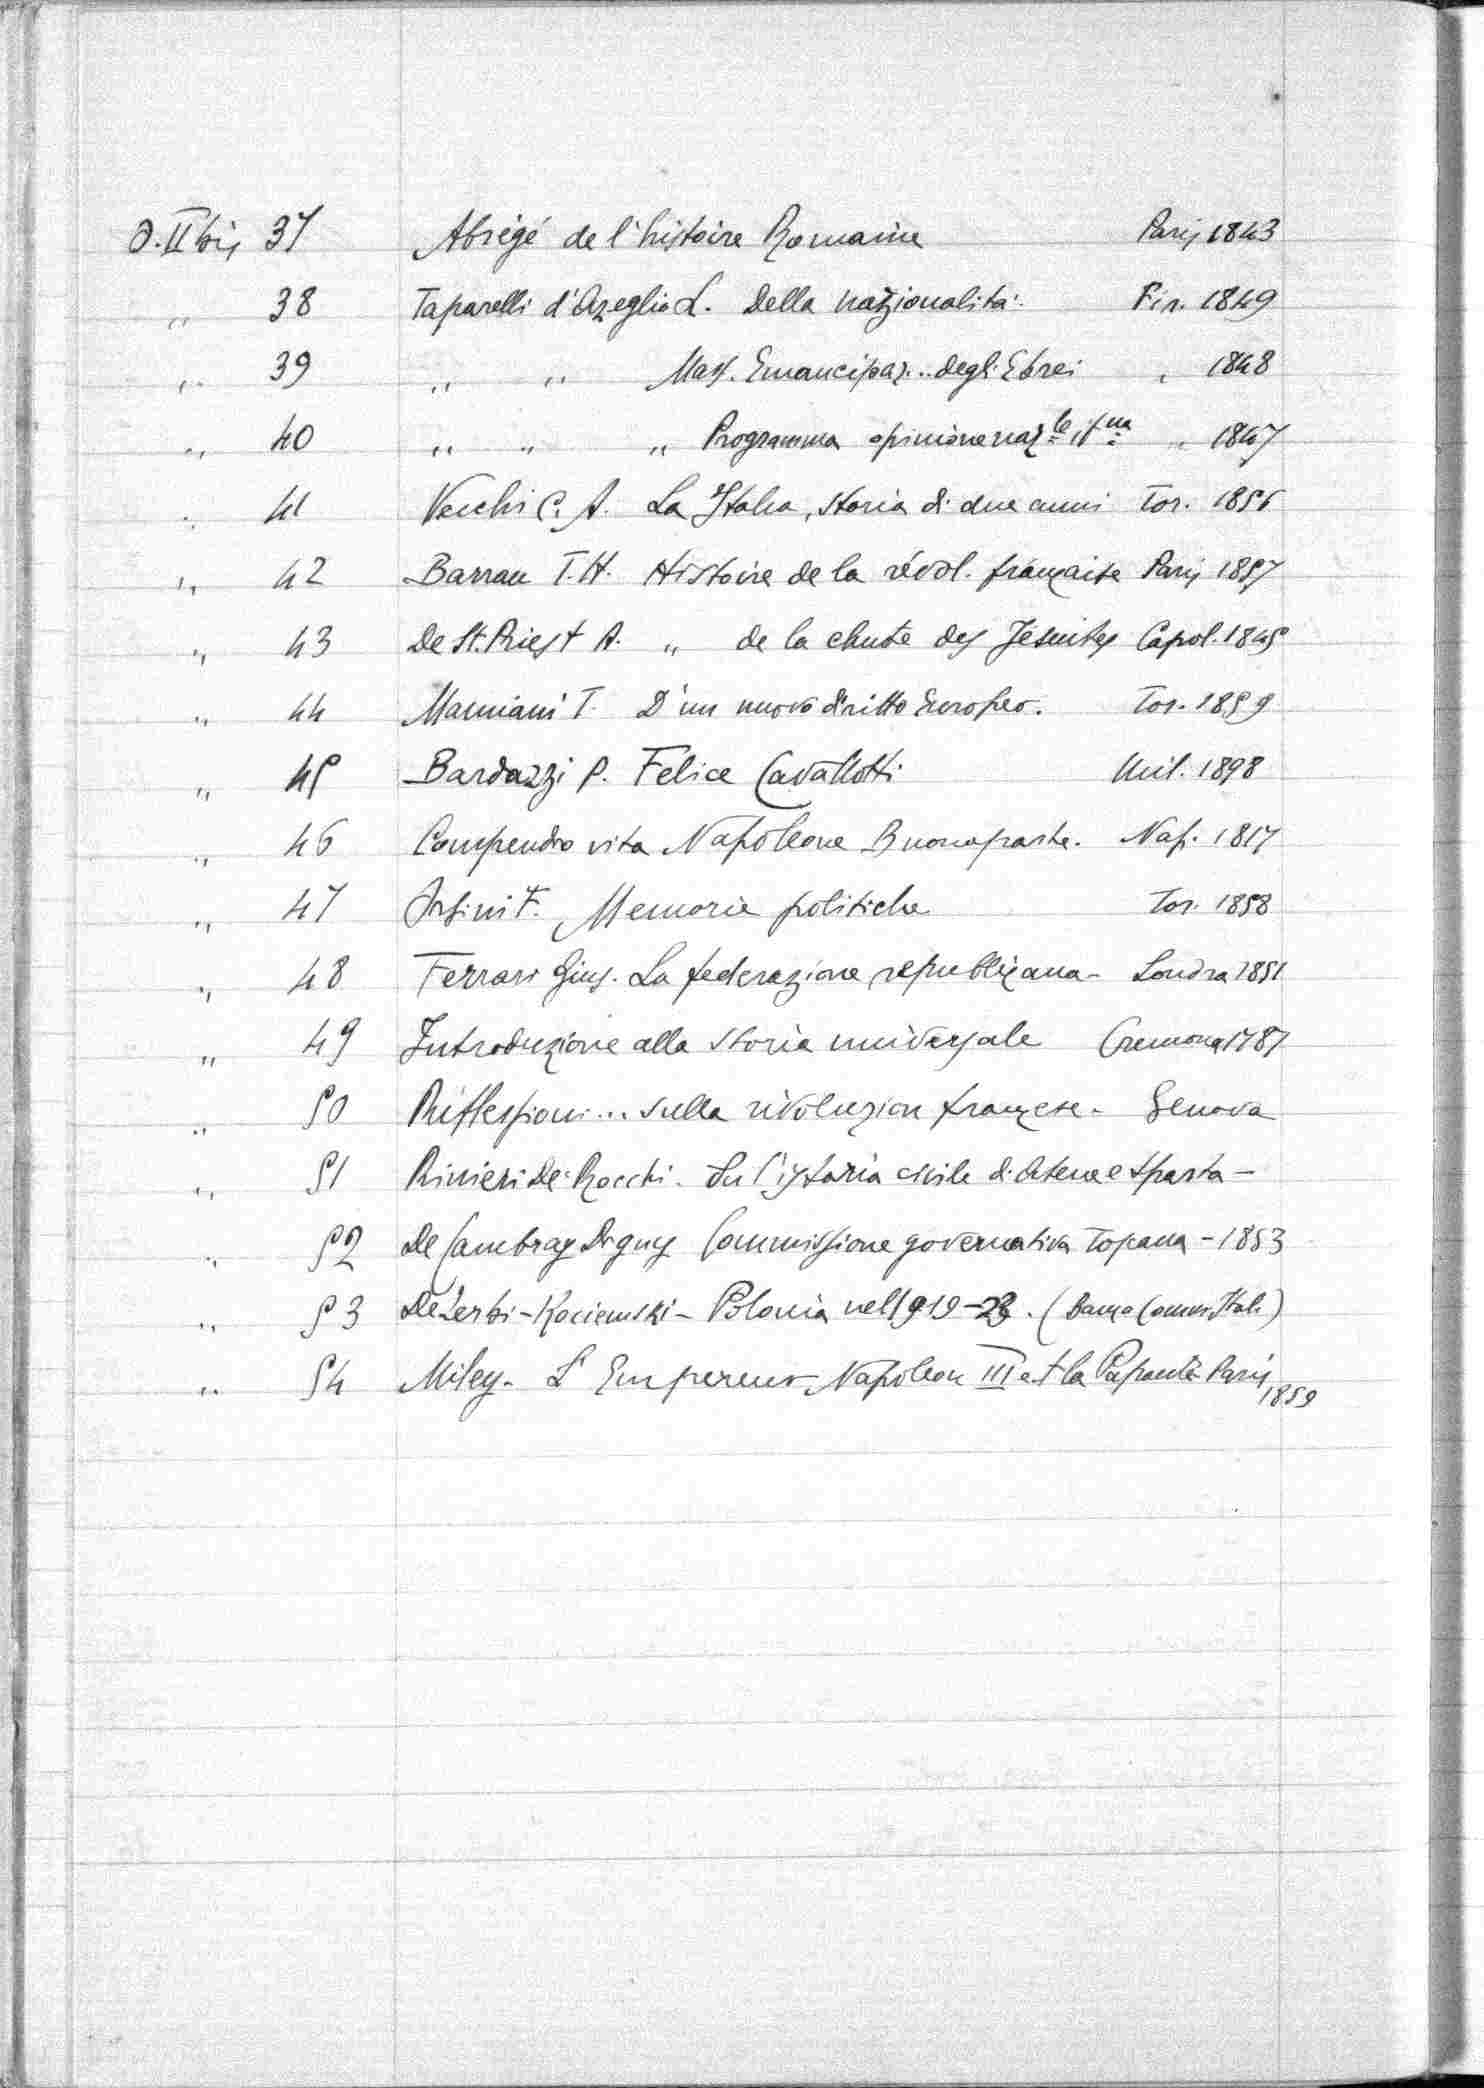 D. II bis 37 Abrégé de l'histoire Romaine Paris 1843
" 38 Taparelli d'Azeglio L. Della nazionalità Fir. 1849
" 39 " " Mass. Emancipaz... degli Ebrei " 1848
" 40 " " " Programma opinione naz.le it.na " 1847
" 41 Vecchi C. A. La Italia, storia di due anni Tor. 1856
" 42 Barrau T. H. Histoire de la révol. française Paris 1857
" 43 De St. Priest A. " de la chute des Jesuites Capol. 1845
" 44 Mamiani T. D'un nuovo diritto Europeo. Tor. 1859
" 45 Bardazzi P. Felice Cavallotti Mil. 1898
" 46 Compendio vita Napoleone Buonaparte. Nap. 1817
" 47 Orsini F. Memorie politiche Tor. 1858
" 48 Ferrari Gius. La federazione repubblicana - Londra 1851
" 49 Introduzione alla storia universale Cremona 1787
" 50 Riflessioni ... sulla rivoluzion francese - Genova
" 51 Rinieri De' Rocchi. Su l'istoria civile di Atene e Sparta -
" 52 De Cambray Digny Commissione governativa Toscana - 1853
" 53 De Zerbi - Kociemski - Polonia nel 1919-23. (Banca Comm. Ital.)
" 54 Miley - L'Empereur Napoleon III et la Papauté Paris
1859